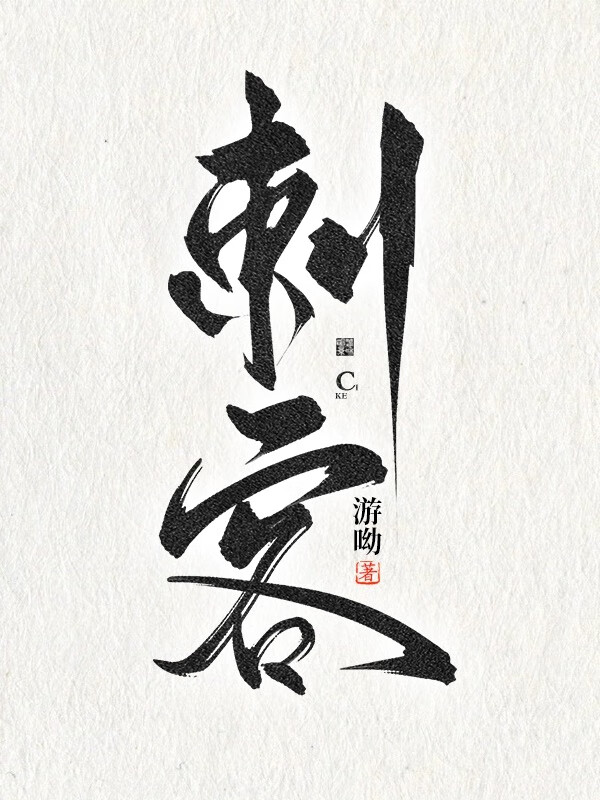 刺客
Ci
KE
游呦
著